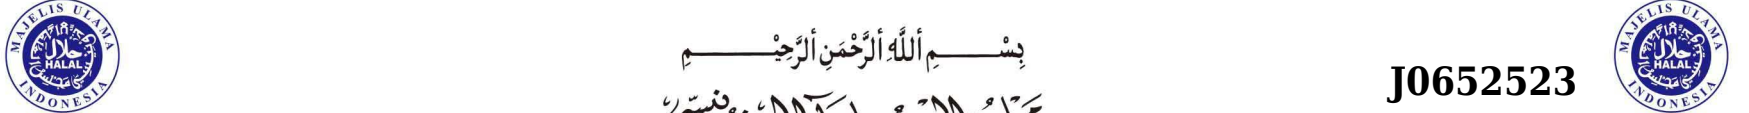 MAJELIS ULAMA INDONESIA
حلال
HALAL
بِسْــــمِ أللَّهِ ألرَّحْمَنِ ألرَّحِيْــــمِ
J0652523
MAJELIS ULAMA INDONESIA
حلال
HALAL